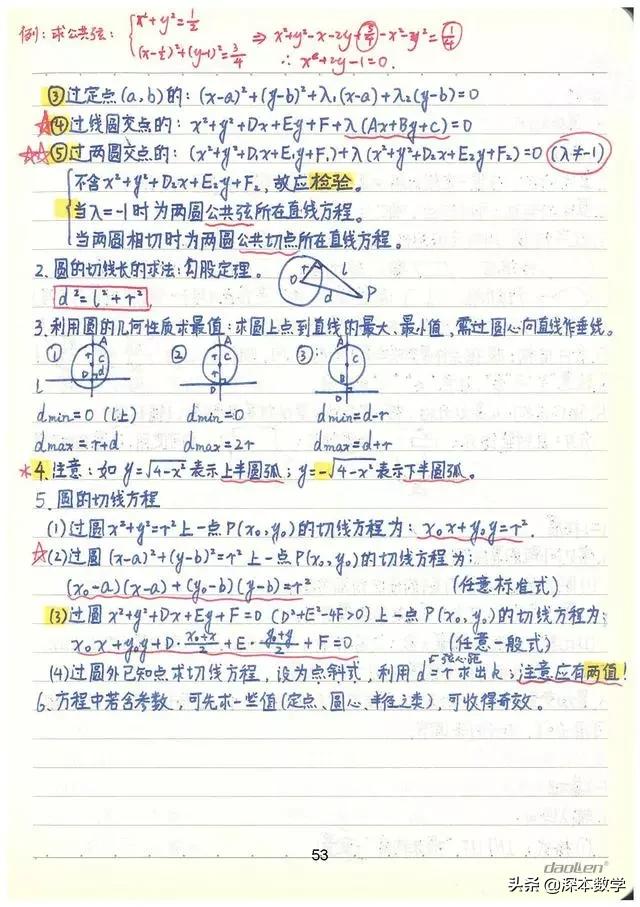 例：求公共弦：{x²+y²=1/2
(x-½)²+(y-1)²=3/4 ⇒ x²+y²-x-2y+5/4-x²-y²=1/4
∴ x+2y-1=0.
③过定点(a,b)的：(x-a)²+(y-b)²+λ₁(x-a)+λ₂(y-b)=0
☆④过线圆交点的：x²+y²+Dx+Ey+F+λ(Ax+By+C)=0
☆☆⑤过两圆交点的：(x²+y²+D₁x+E₁y+F₁)+λ(x²+y²+D₂x+E₂y+F₂)=0 (λ≠-1)
不含x²+y²+D₂x+E₂y+F₂，故应检验。
当λ=-1时为两圆公共弦所在直线方程。
当两圆相切时为两圆公共切点所在直线方程。
2. 圆的切线长的求法：勾股定理。
O r l d P
d²=l²+r²
3. 利用圆的几何性质求最值：求圆上点到直线的最大、最小值，需过圆心向直线作垂线。
① A r C d D l ② A r C D ③ A r C D
dmin=0 (l上) dmin=0 dmin=d-r
dmax=r+d dmax=2r dmax=d+r
*4. 注意：如y=√4-x² 表示上半圆弧；y=-√4-x² 表示下半圆弧。
5. 圆的切线方程
(1)过圆x²+y²=r²上一点P(x₀,y₀)的切线方程为：x₀x+y₀y=r².
☆(2)过圆(x-a)²+(y-b)²=r²上一点P(x₀,y₀)的切线方程为：
(x₀-a)(x-a)+(y₀-b)(y-b)=r² (任意标准式)
(3)过圆x²+y²+Dx+Ey+F=0 (D²+E²-4F>0)上一点P(x₀,y₀)的切线方程为：
x₀x+y₀y+D·(x₀+x)/2+E·(y₀+y)/2+F=0 (任意一般式)
(4)过圆外已知点求切线方程，设为点斜式，利用d=r求出k；注意应有两值！
弦心距
6. 方程中若含参数，可先求一些值(定点、圆心、半径之类)，可收得奇效。
53
daolen
头条@深本数学